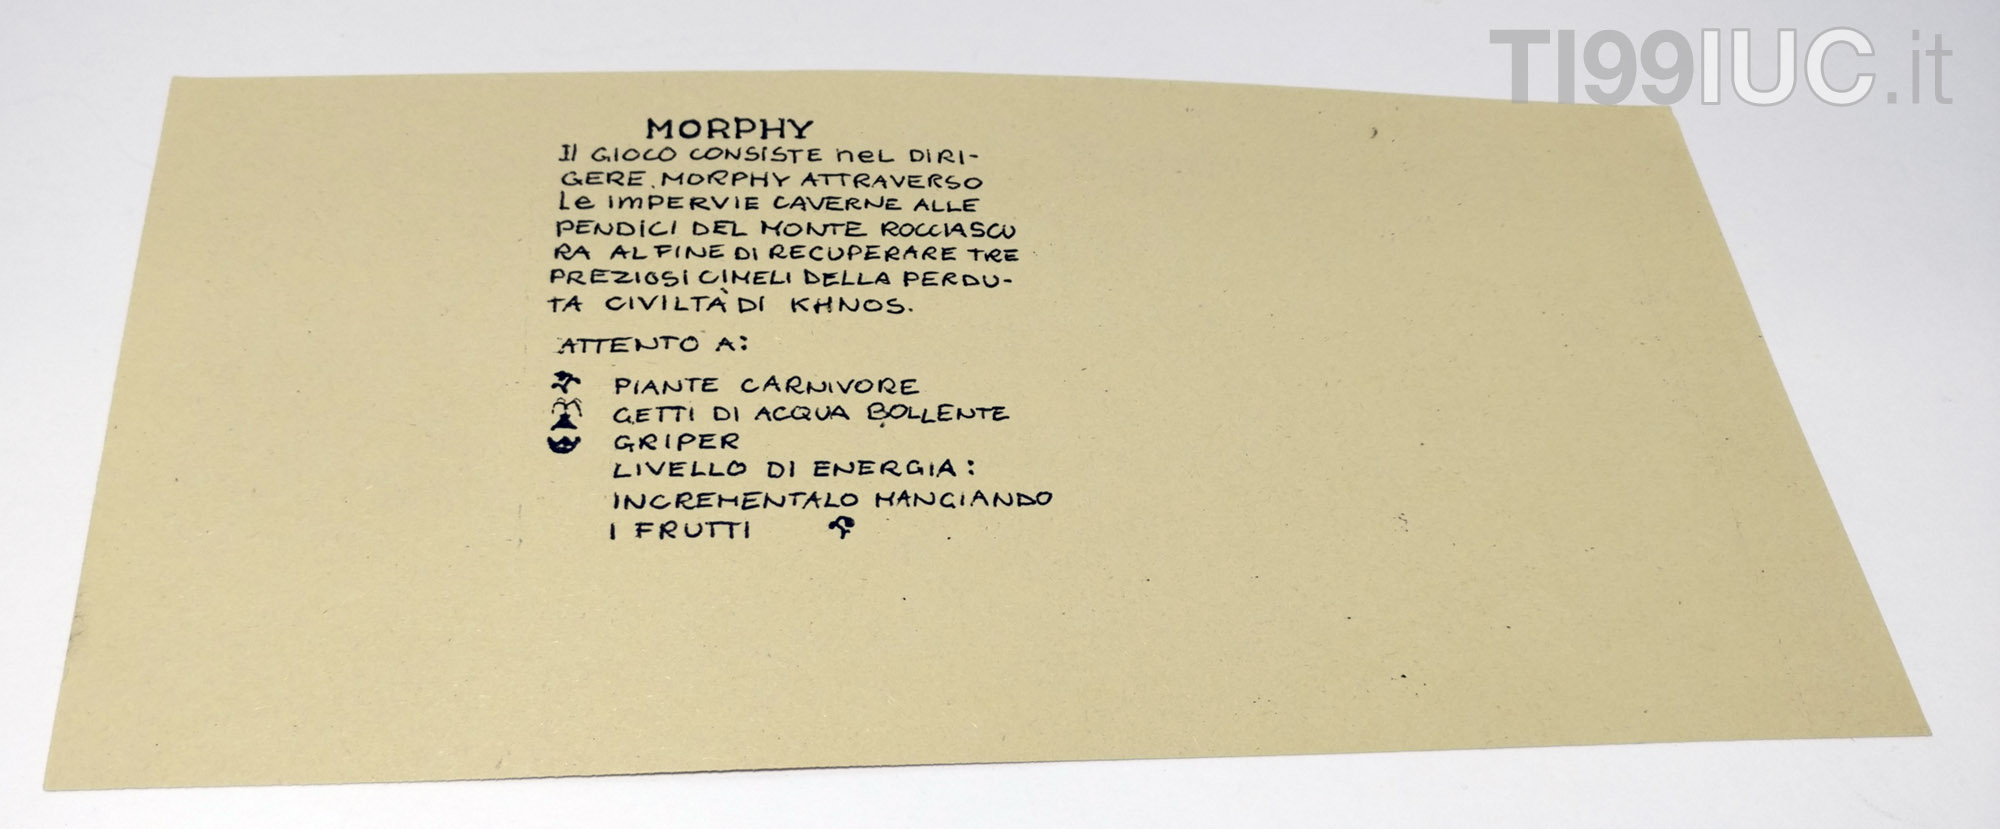 TI99IUC.it
MORPHY
Il GIOCO CONSISTE nEL DIRI-
GERE MORPHY ATTRAVERSO
Le imPERVIE CAVERNE ALLE
PENDICI DEL MONTE ROCCIASCU
RA AL FINE DI RECUPERARE TRE
PREZIOSI CIMELI DELLA PERDU-
TA CIVILTÀ DI KHNOS.
ATTENTO A:
PIANTE CARNIVORE
GETTI DI ACQUA BOLLENTE
GRIPER
LIVELLO DI ENERGIA:
INCREMENTALO MANGIANDO
I FRUTTI